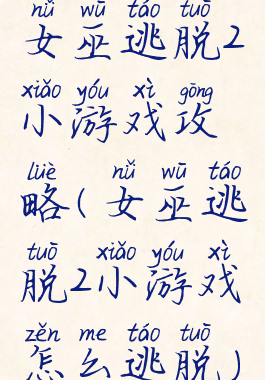 nǚ wū táo tuō
女巫逃脱2
xiǎo yóu xì gōng
小游戏攻
lüè nǚ wū táo
略(女巫逃
tuō xiǎo yóu xì
脱2小游戏
zěn me táo tuō
怎么逃脱)